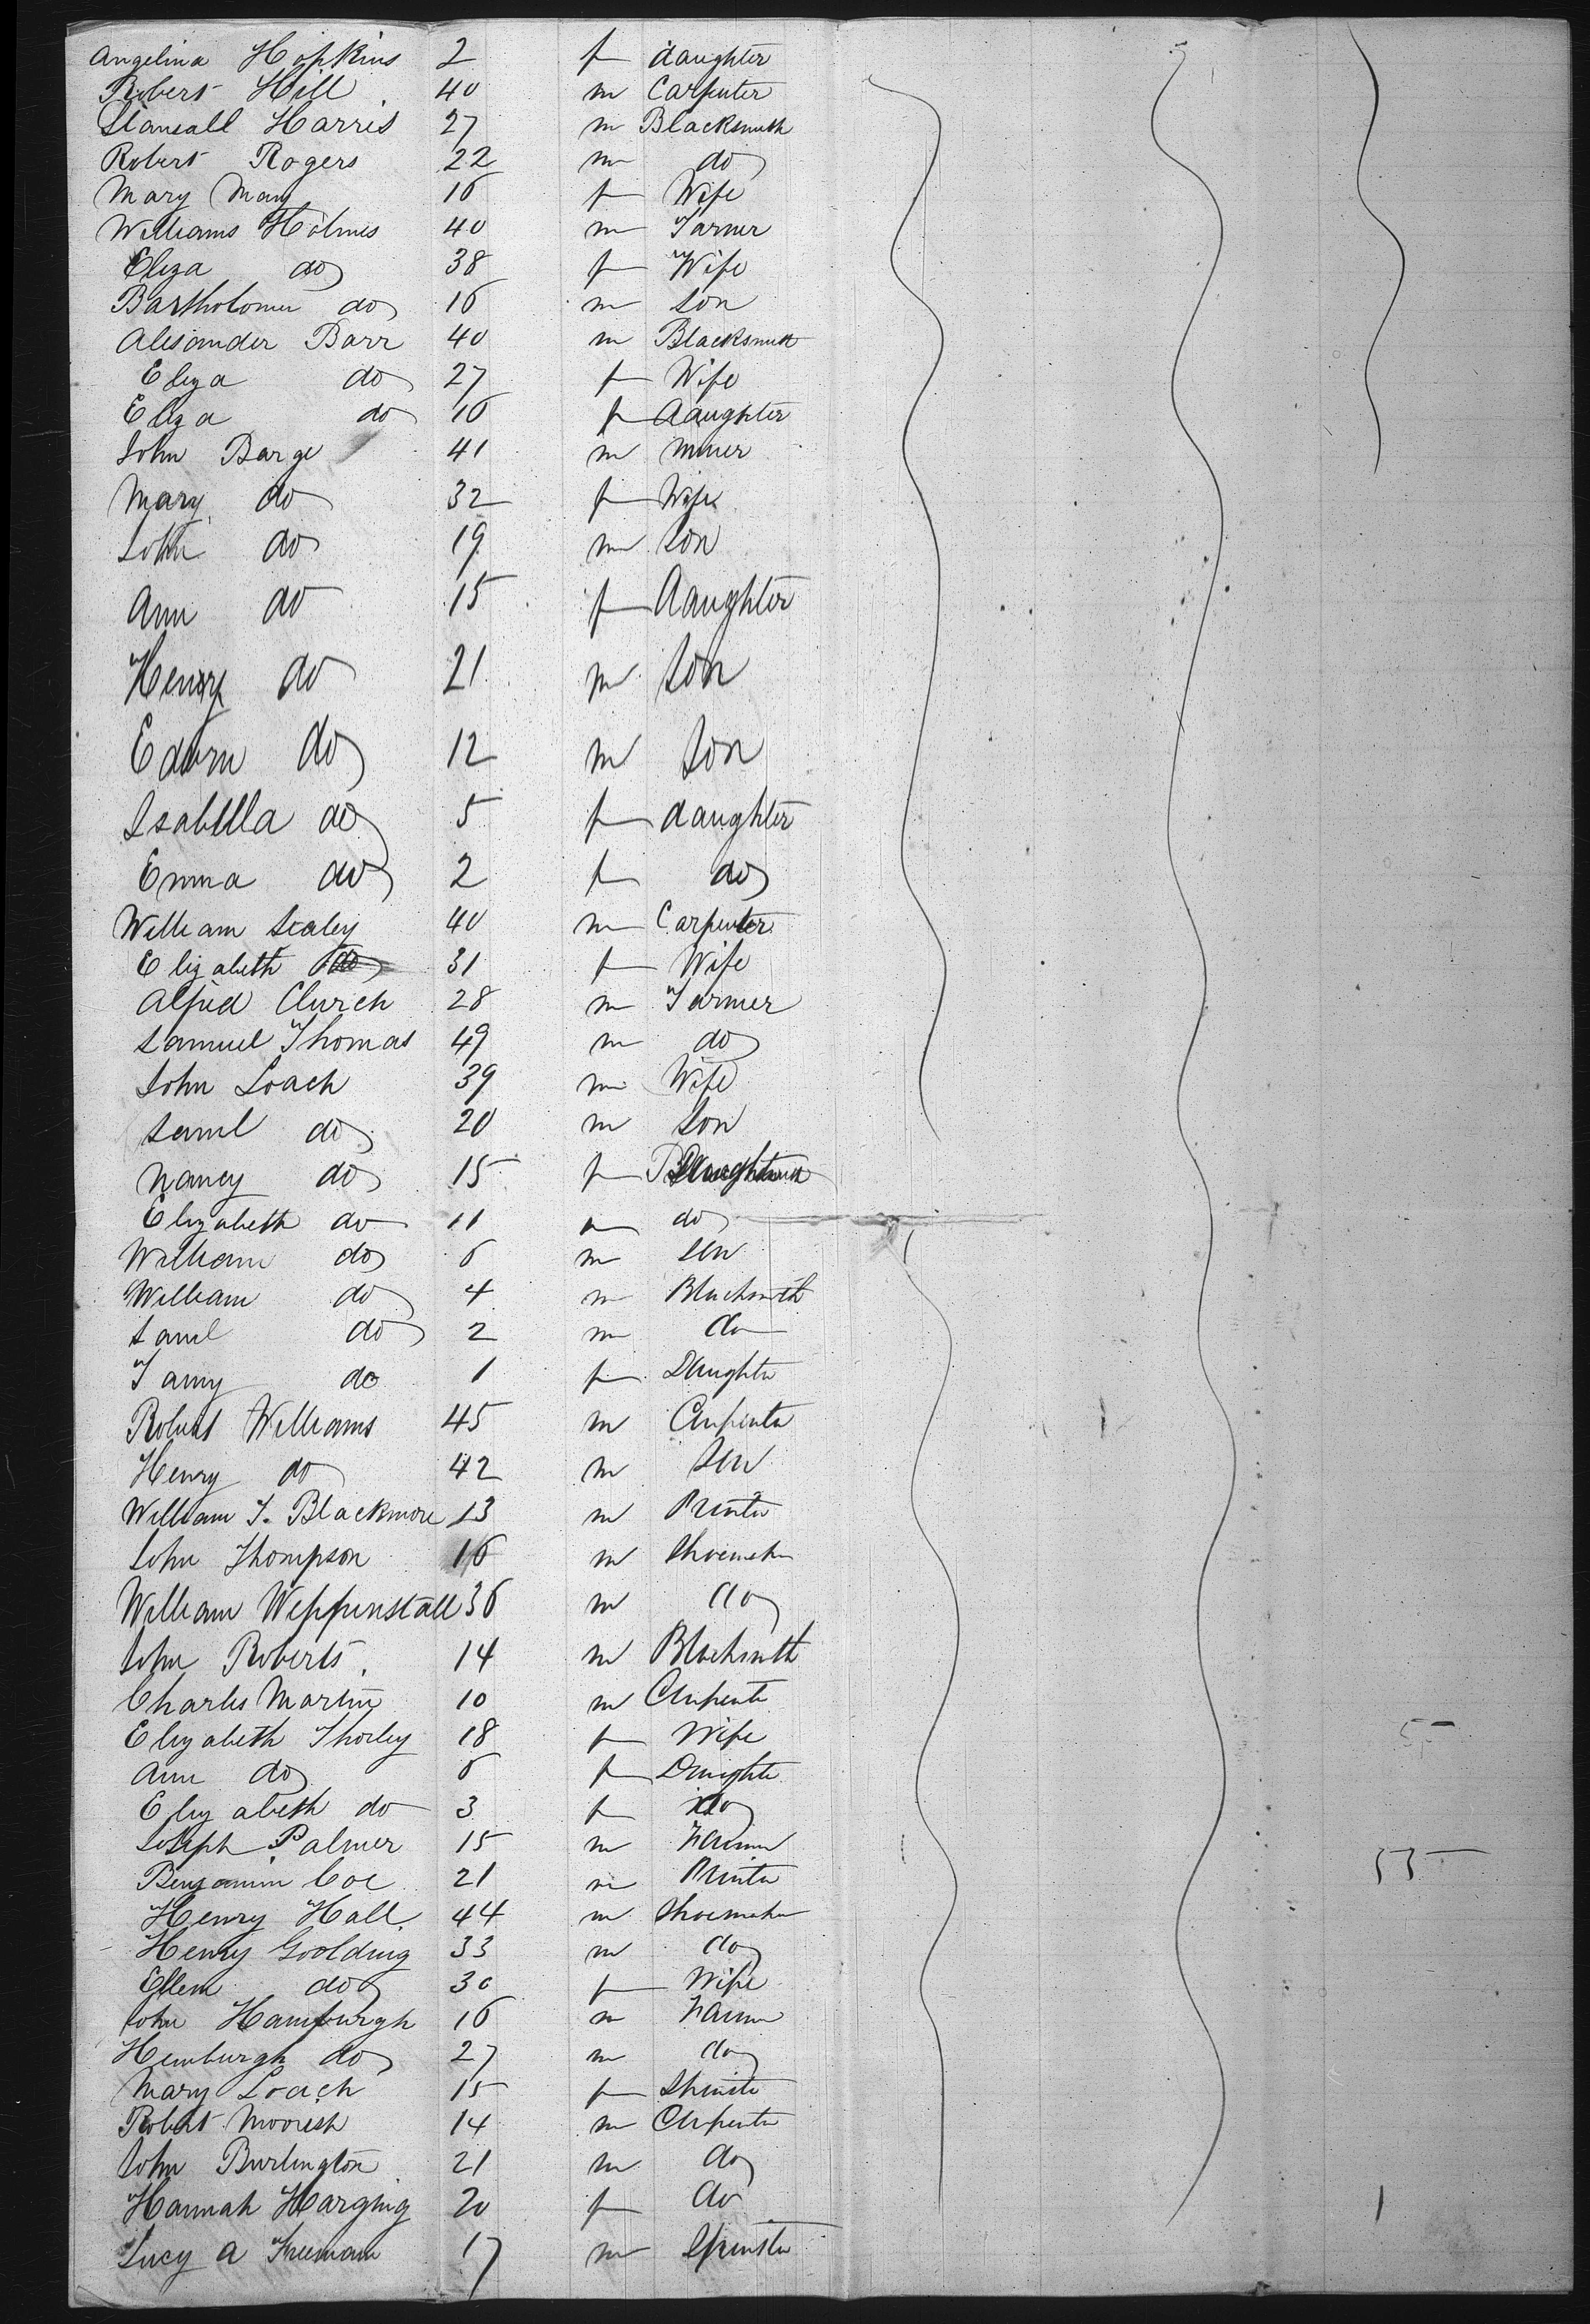 Angelina Hopkins 2 f daughter
Robert Hill 40 m Carpenter
Harris 27 m Blacksmith
Robert Rogers 22 m do
Mary May 16 f Wife
Williams Holmes 40 m Farmer
Eliza do 38 f Wife
Bartholomew do 16 m son
Alexander Barr 40 m Blacksmith
Eliza do 27 f Wife
Eliza do 16 f daughter
John Barge 41 m miner
Mary do 32 f Wife
John do 19 m son
Ann do 15 f daughter
Henry do 21 m son
Edwin do 12 m son
Isabella do 5 f daughter
Emma do 2 f do
William Sealey 40 m Carpenter
Elizabeth do 31 f Wife
Alfred Church 28 m Farmer
Samuel Thomas 49 m do
John Loach 39 m Wife
Saml do 20 m son
Nancy do 15 f
Elizabeth do 11 do
William do 6 m son
William do 4 m Blacksmith
Saml do 2 m do
Fanny do 1 f Daughter
Robert Williams 45 m Carpenter
Henry do 42 m son
William J. Blackmore 13 m Printer
John Thompson 16 m Shoemaker
William Weppenstall 36 m do
John Roberts 14 m Blacksmith
Charles Martin 10 m Carpenter
Elizabeth Thorley 18 f Wife
Ann do 6 f Daughter
Elizabeth do 3 f do
Joseph Palmer 15 m Farmer
Benjamin Coe 21 m Printer
Henry Hall 44 m Shoemaker
Henry Goolding 33 m do
Ellen do 30 f Wife
John Hamburgh 16 m Farmer
Hemburgh do 27 m do
Mary Loach 15 f Spinster
Robert Moorish 14 m Carpenter
John Burlington 21 m do
Hannah Harging 20 f do
Lucy A Freeman 17 m Spinster
55
1